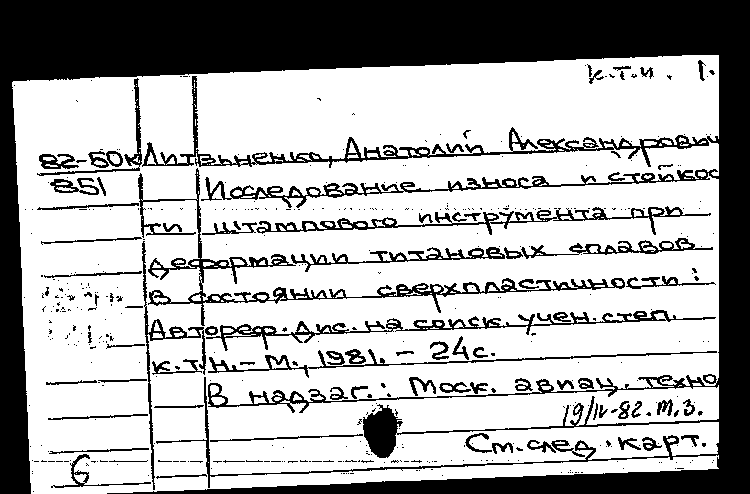 к.т.н. 1.
82-50к Литвиненко, Анатолий Александрович
851 Исследование износа и стойкос
ти штампового инструмента при
деформации титановых сплавов
в состоянии сверхпластичности:
Автореф. дис. на соиск. учен. степ.
к.т.н. - М., 1981. - 24с.
В надзаг.: Моск. авиац. техно
19/IV-82. т.З.
См. след. карт.
6